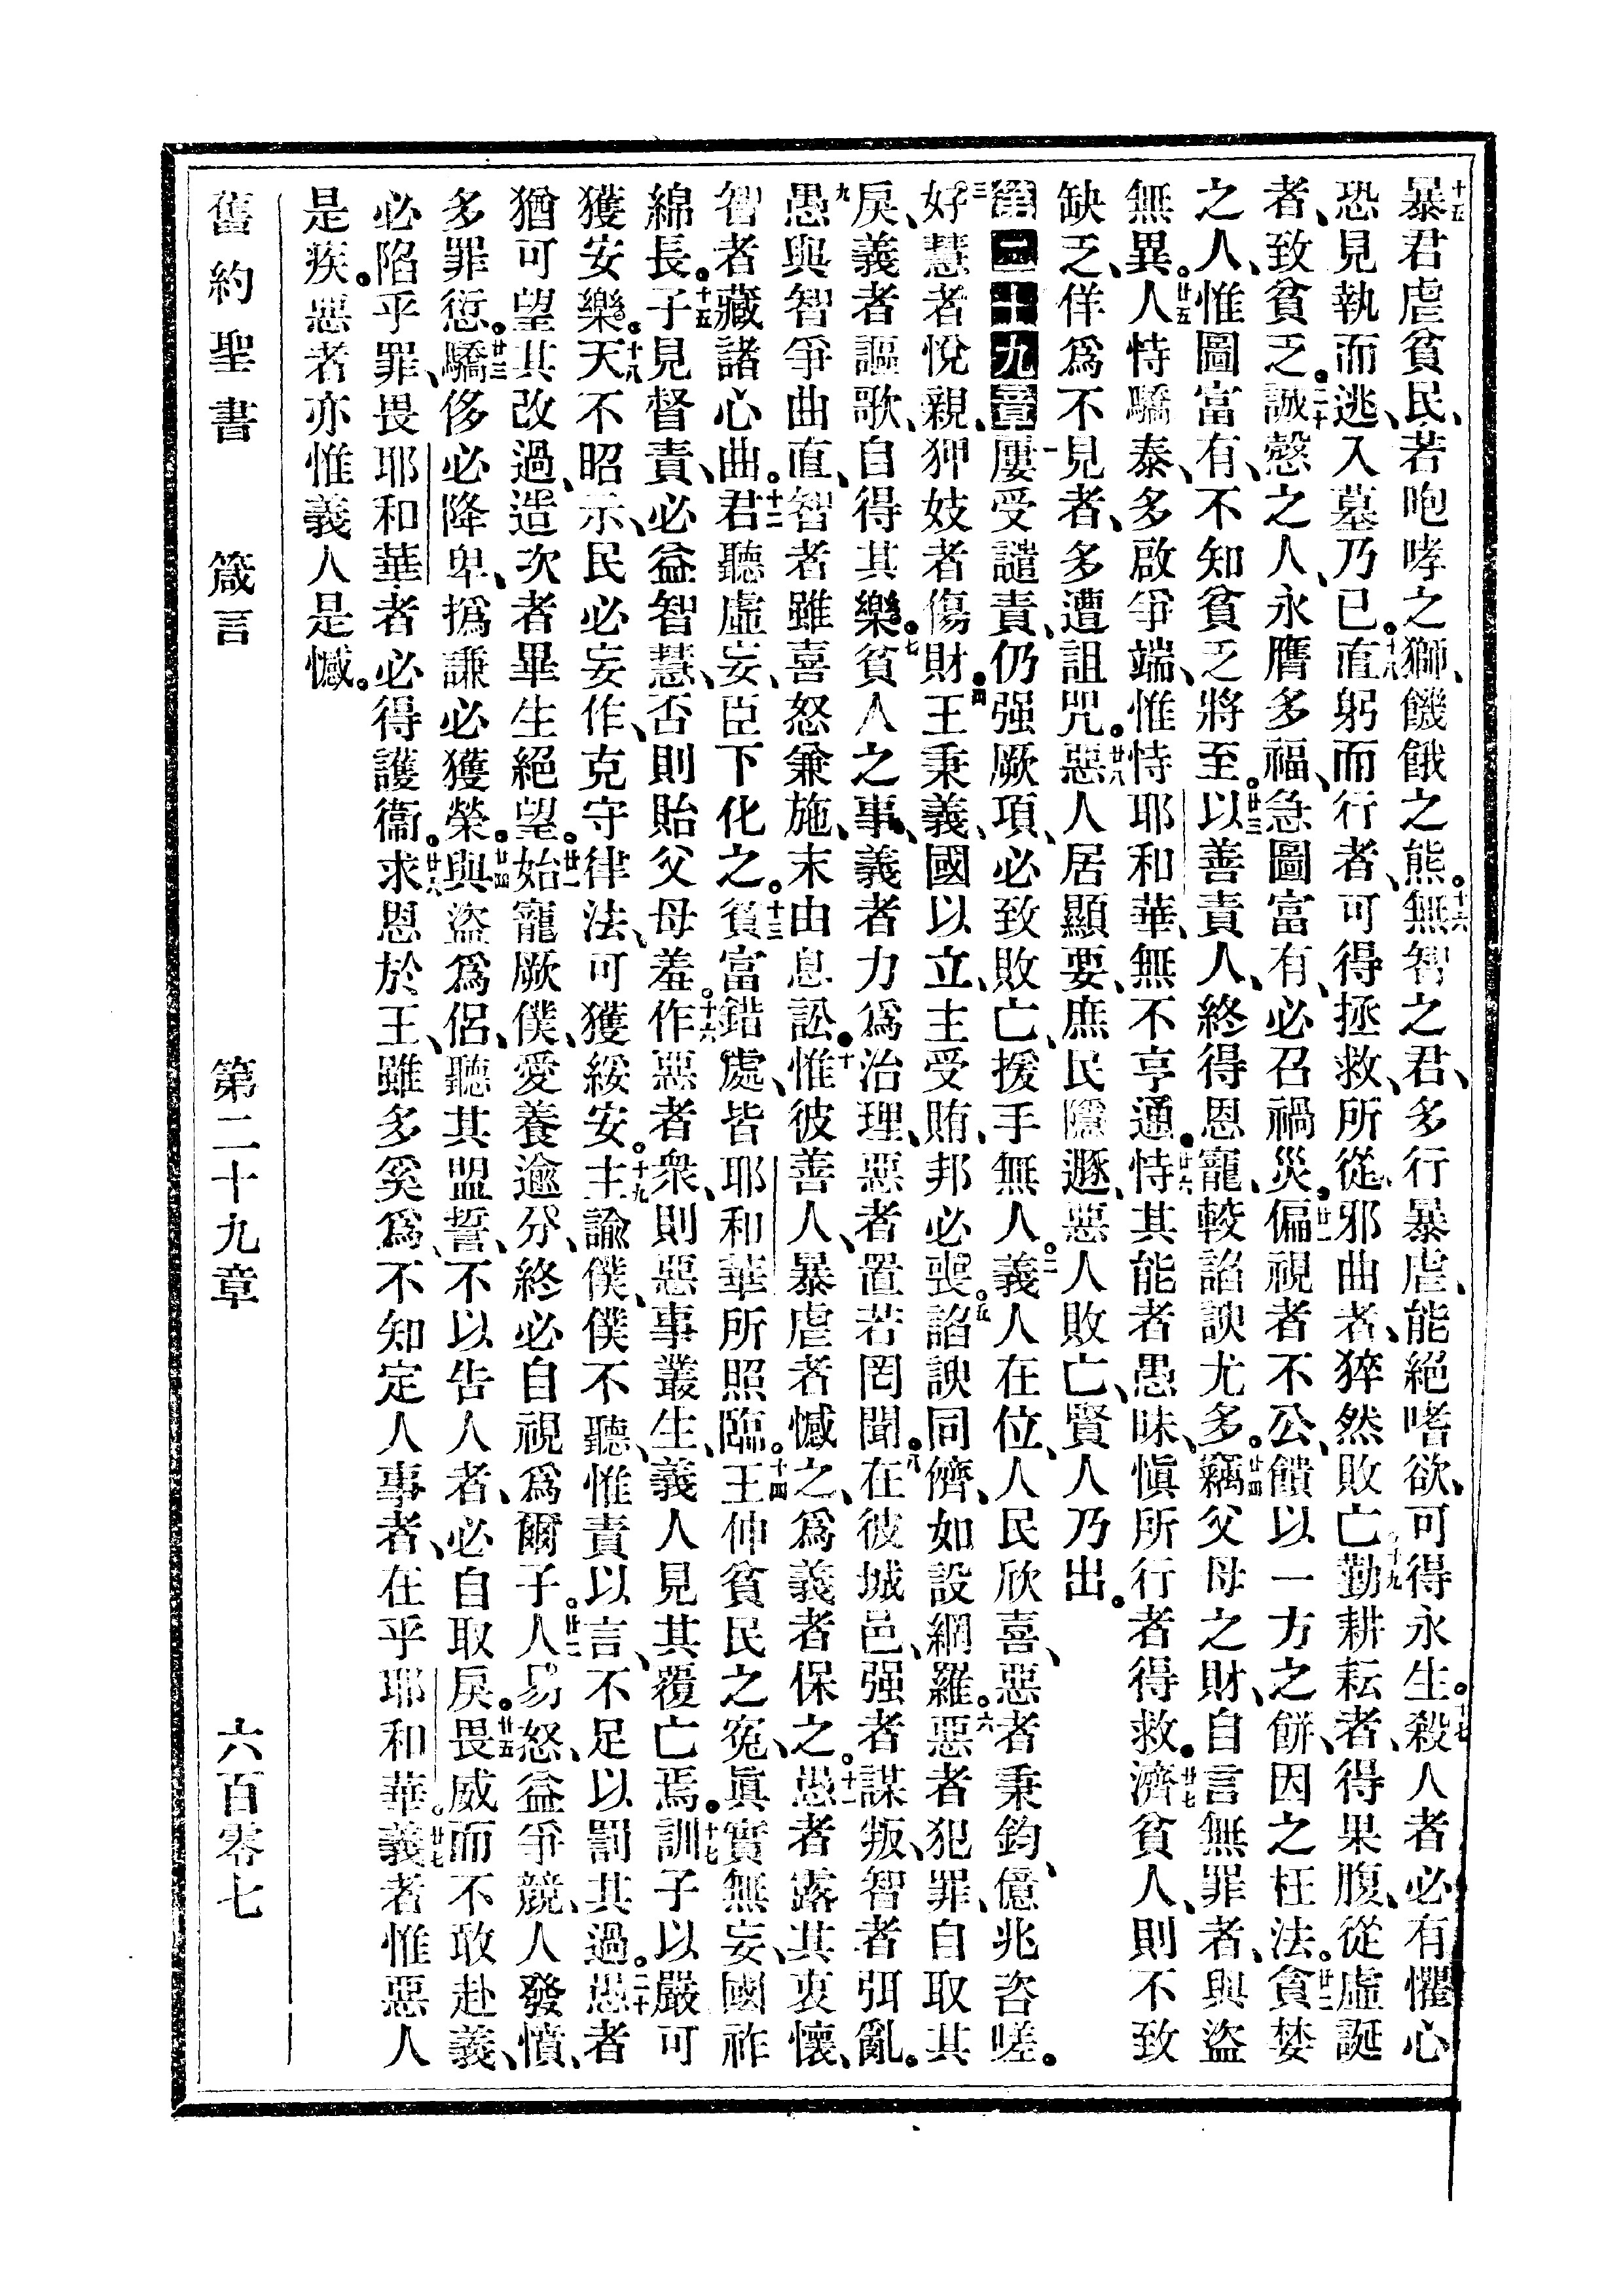 十五暴君虐貧民、若咆哮之獅、饑餓之熊。十六無智之君、多行暴虐、能絕嗜欲、可得永生。十七殺人者必有懼心
恐見執而逃、入墓乃已。十八直躬而行者、可得拯救、所從邪曲者、猝然敗亡、十九勤耕耘者、得果腹、從虛誕
者、致貧乏。二十誠慤之人、永膺多福、急圖富有、必召禍災。廿一偏視者不公、饋以一方之餅、因之枉法。廿二貪婪
之人、惟圖富有、不知貧乏將至。廿三以善責人、終得恩寵、較諂諛尤多。廿四竊父母之財、自言無罪者、與盜
無異。廿五人恃驕泰、多啟爭端、惟恃耶和華、無不亨通。廿六恃其能者愚昧、愼所行者得救。廿七濟貧人、則不致
缺乏、佯爲不見者、多遭詛咒。廿八惡人居顯要、庶民隱遯、惡人敗亡、賢人乃出。
第二十九章 一屢受譴責、仍强厥項、必致敗亡、援手無人。二義人在位、人民欣喜、惡者秉鈞、億兆咨嗟。
三好慧者悅親、狎妓者傷財。四王秉義、國以立、主受賄、邦必喪。五諂諛同儕、如設網羅。六惡者犯罪、自取其
戾、義者謳歌、自得其樂。七貧人之事、義者力爲治理、惡者置若罔聞。八在彼城邑、强者謀叛、智者弭亂。
九愚與智爭曲直、智者雖喜怒兼施、末由息訟。十惟彼善人、暴虐者憾之、爲義者保之。十一愚者露其衷懷、
智者藏諸心曲。十二君聽虛妄、臣下化之。十三貧富錯處、皆耶和華所照臨。十四王伸貧民之寃、眞實無妄、國祚
綿長。十五子見督責、必益智慧、否則貽父母羞。十六作惡者衆、則惡事叢生、義人見其覆亡焉。十七訓子以嚴、可
獲安樂。十八天不昭示、民必妄作、克守律法、可獲綏安。十九主諭僕、僕不聽、惟責以言、不足以罰其過。二十愚者
猶可望其改過、造次者畢生絕望。廿一始寵厥僕、愛養逾分、終必自視爲爾子。廿二人易怒、益爭競、人發憤、
多罪愆。廿三驕侈必降卑、撝謙必獲榮。廿四與盜爲侶、聽其盟誓、不以告人者、必自取戾。廿五畏威而不敢赴義、
必陷乎罪、畏耶和華者必得護衞。廿六求恩於王、雖多奚爲、不知定人事者、在乎耶和華。廿七義者惟惡人
是疾。惡者亦惟義人是憾。
舊約聖書 箴言 第二十九章 六百零七